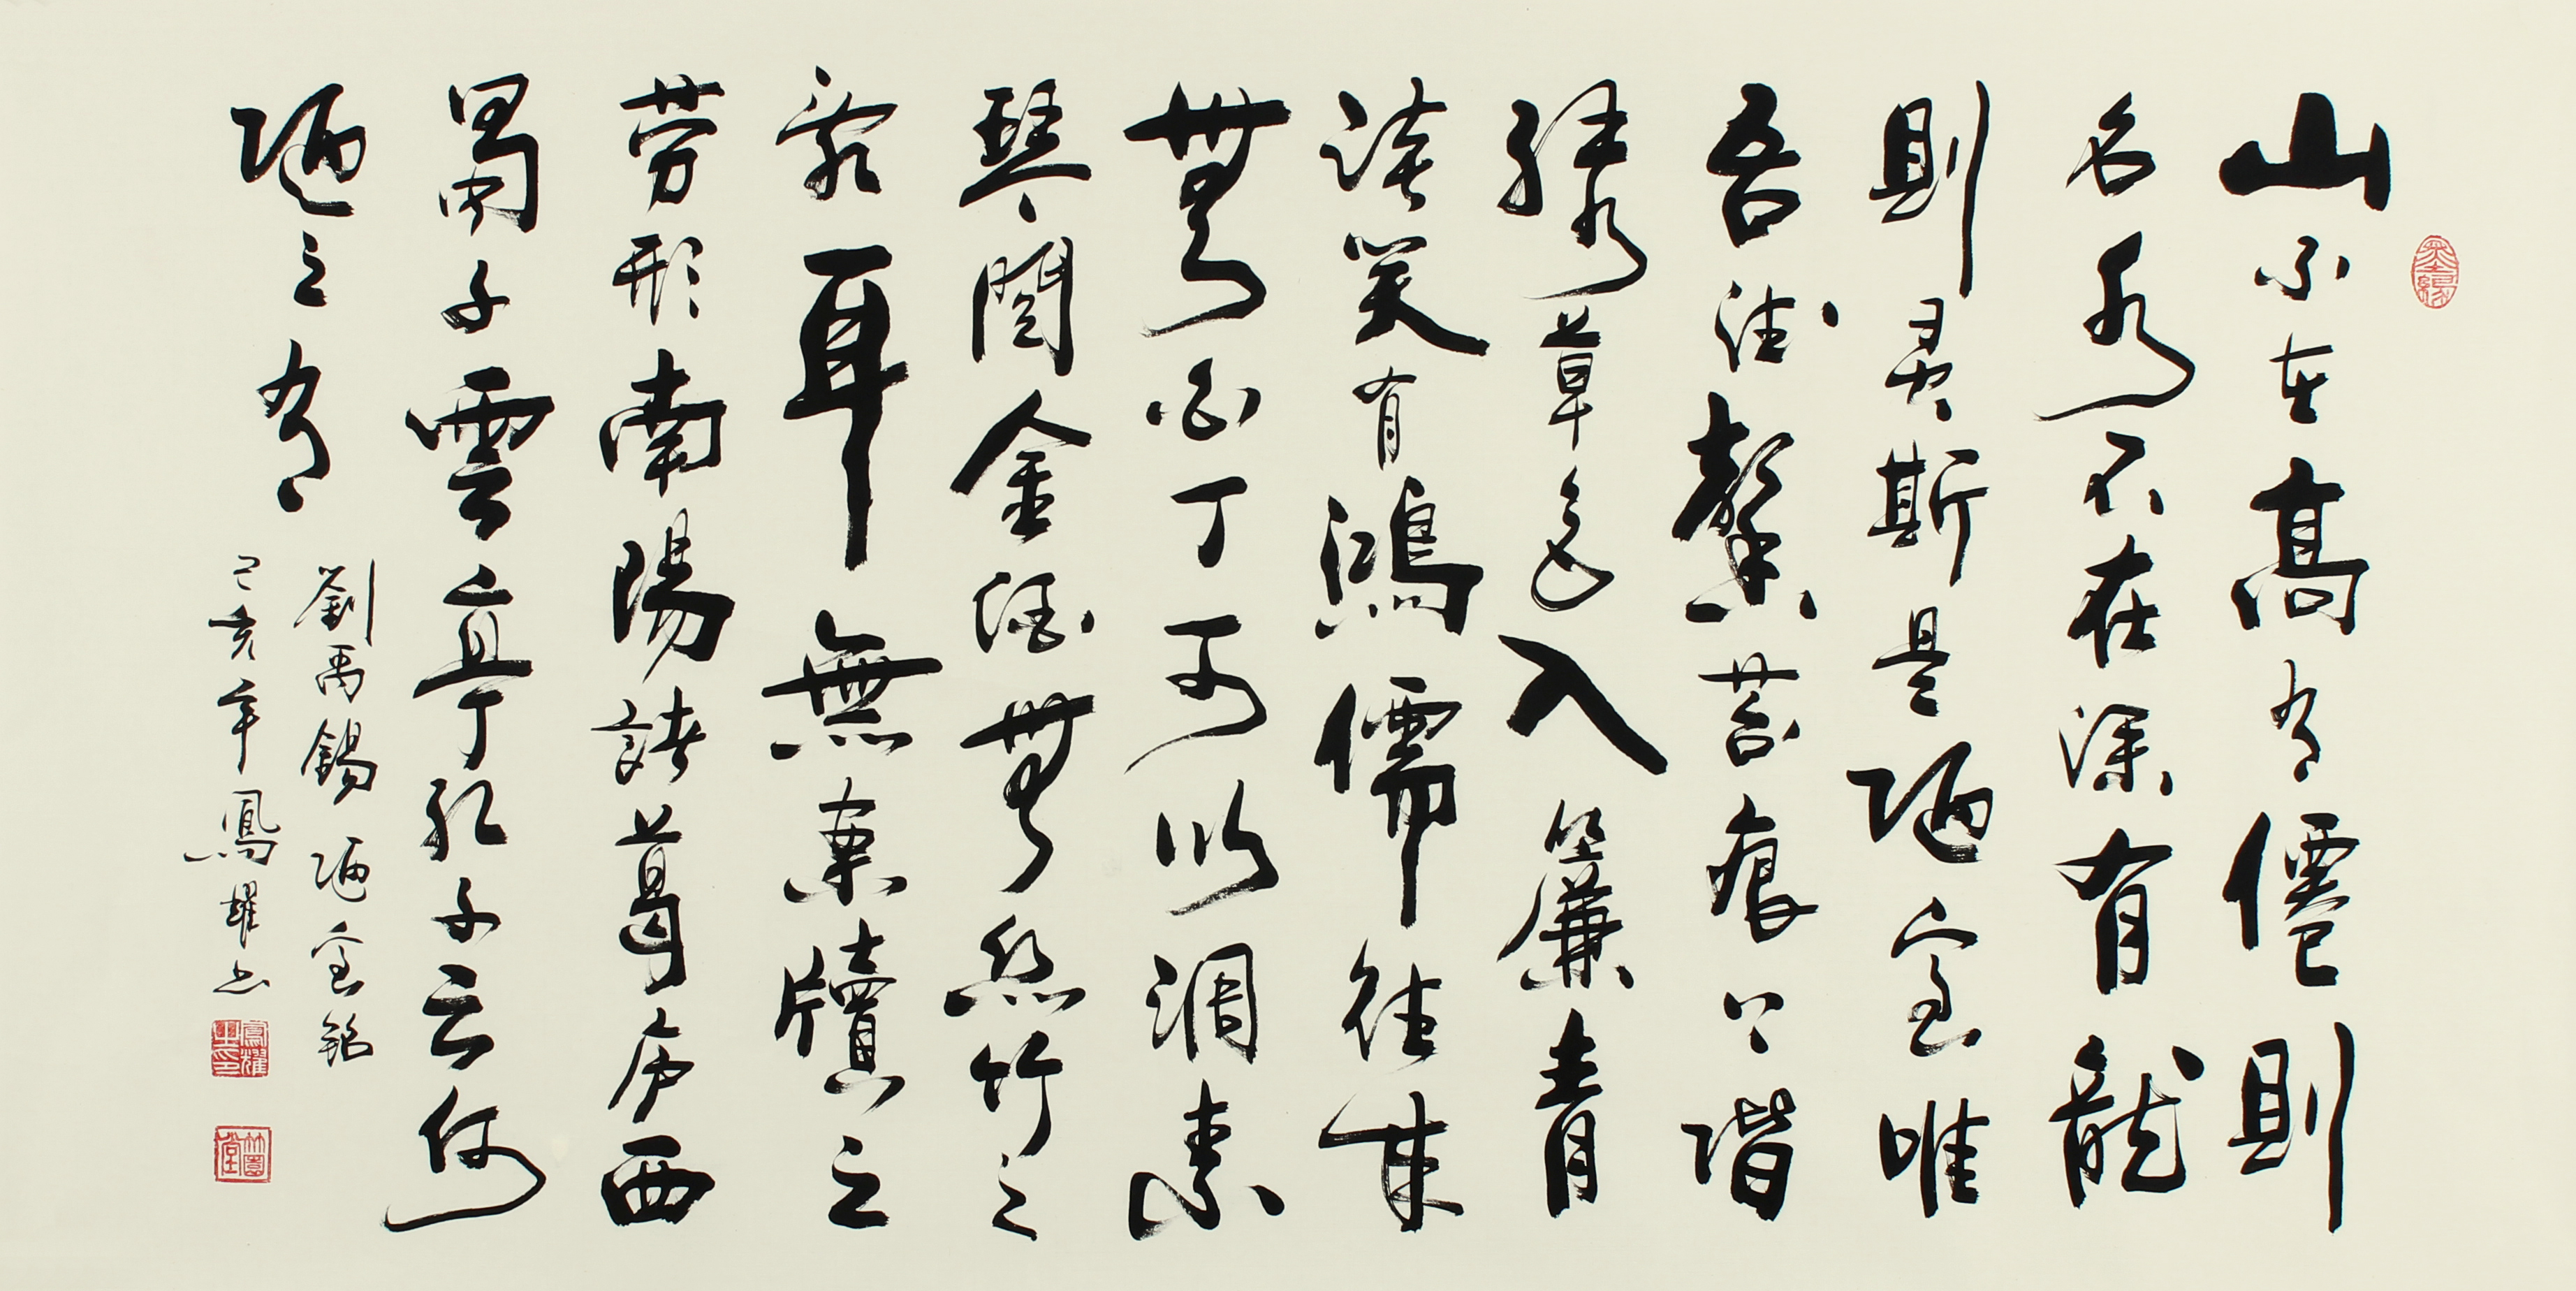 山不在高有僊則
名水不在深有龍
則灵斯是陋室唯
吾德馨苔痕上階
緑草色入簾青
談笑有鴻儒往来
無白丁可以調素
琴閲金经無絲竹之
乱耳無案牘之
劳形南陽諸葛庐西
蜀子雲亭孔子云何
陋之有
劉禹錫陋室銘
己亥年鳳耀书